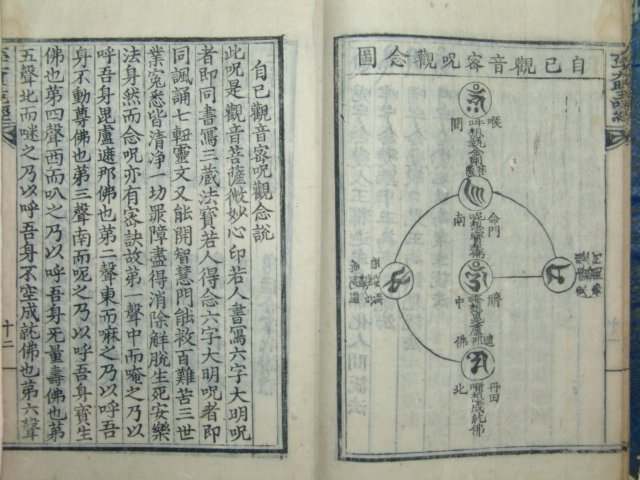 自已觀音密呪觀念圖
喉
間
命門
南
臍
中
丹田
北
自已觀音密呪觀念說
此呪是觀音菩薩微妙心印若人書寫六字大明呪
者即同書寫三藏法寶若人得念六字大明呪者即
同諷誦七軸靈文又能開智慧門能救百難苦三世
業寃悉皆清淨一切罪障盡得消除解脫生死安樂
法身然而念呪亦有密訣故第一聲中而唵之乃以
呼吾身毘盧遮那佛也第二聲東而嘛之乃以呼吾
身不動尊佛也第三聲南而呢之乃以呼吾身寶生
佛也第四聲西而叭之乃以呼吾身无量壽佛也第
五聲北而咪之乃以呼吾身不空成就佛也第六聲
十二